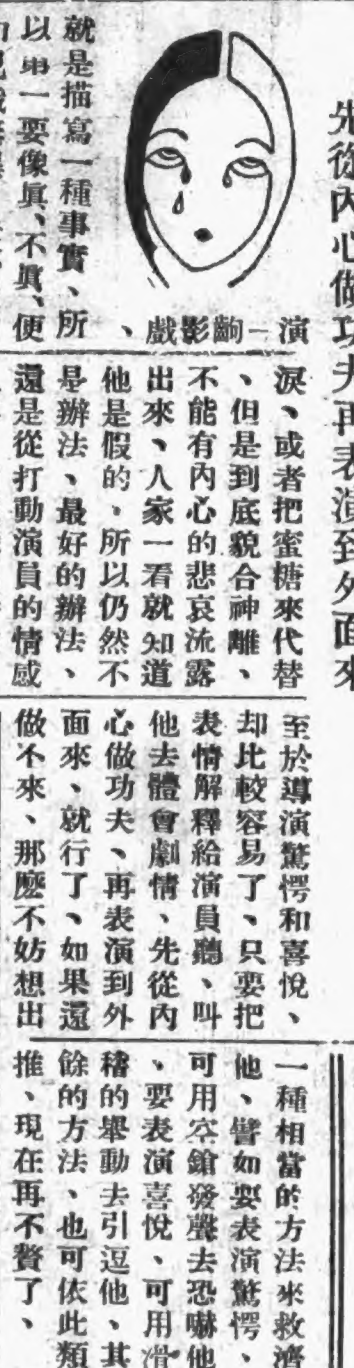 先從內心做功夫再表演到外面來
演一齣影戲、
就是描寫一種事實、所
以第一要像眞、不眞、便
淚、或者把蜜糖來代替
、但是到底貌合神離、
不能有內心的悲哀流露
出來、人家一看就知道
他是假的，所以仍然不
是辦法、最好的辦法、
還是從打動演員的情感
至於導演驚愕和喜悅、
却比較容易了、只要把
表情解釋給演員聽、叫
他去體會劇情、先從內
心做功夫、再表演到外
面來、就行了、如果還
做不來、那麽不妨想出
一種相當的方法來救濟
他、譬如要表演驚愕、
可用空鎗發聲去恐嚇他
、要表演喜悅、可用滑
稽的舉動去引逗他、其
餘的方法、也可依此類
推、現在再不贅了、